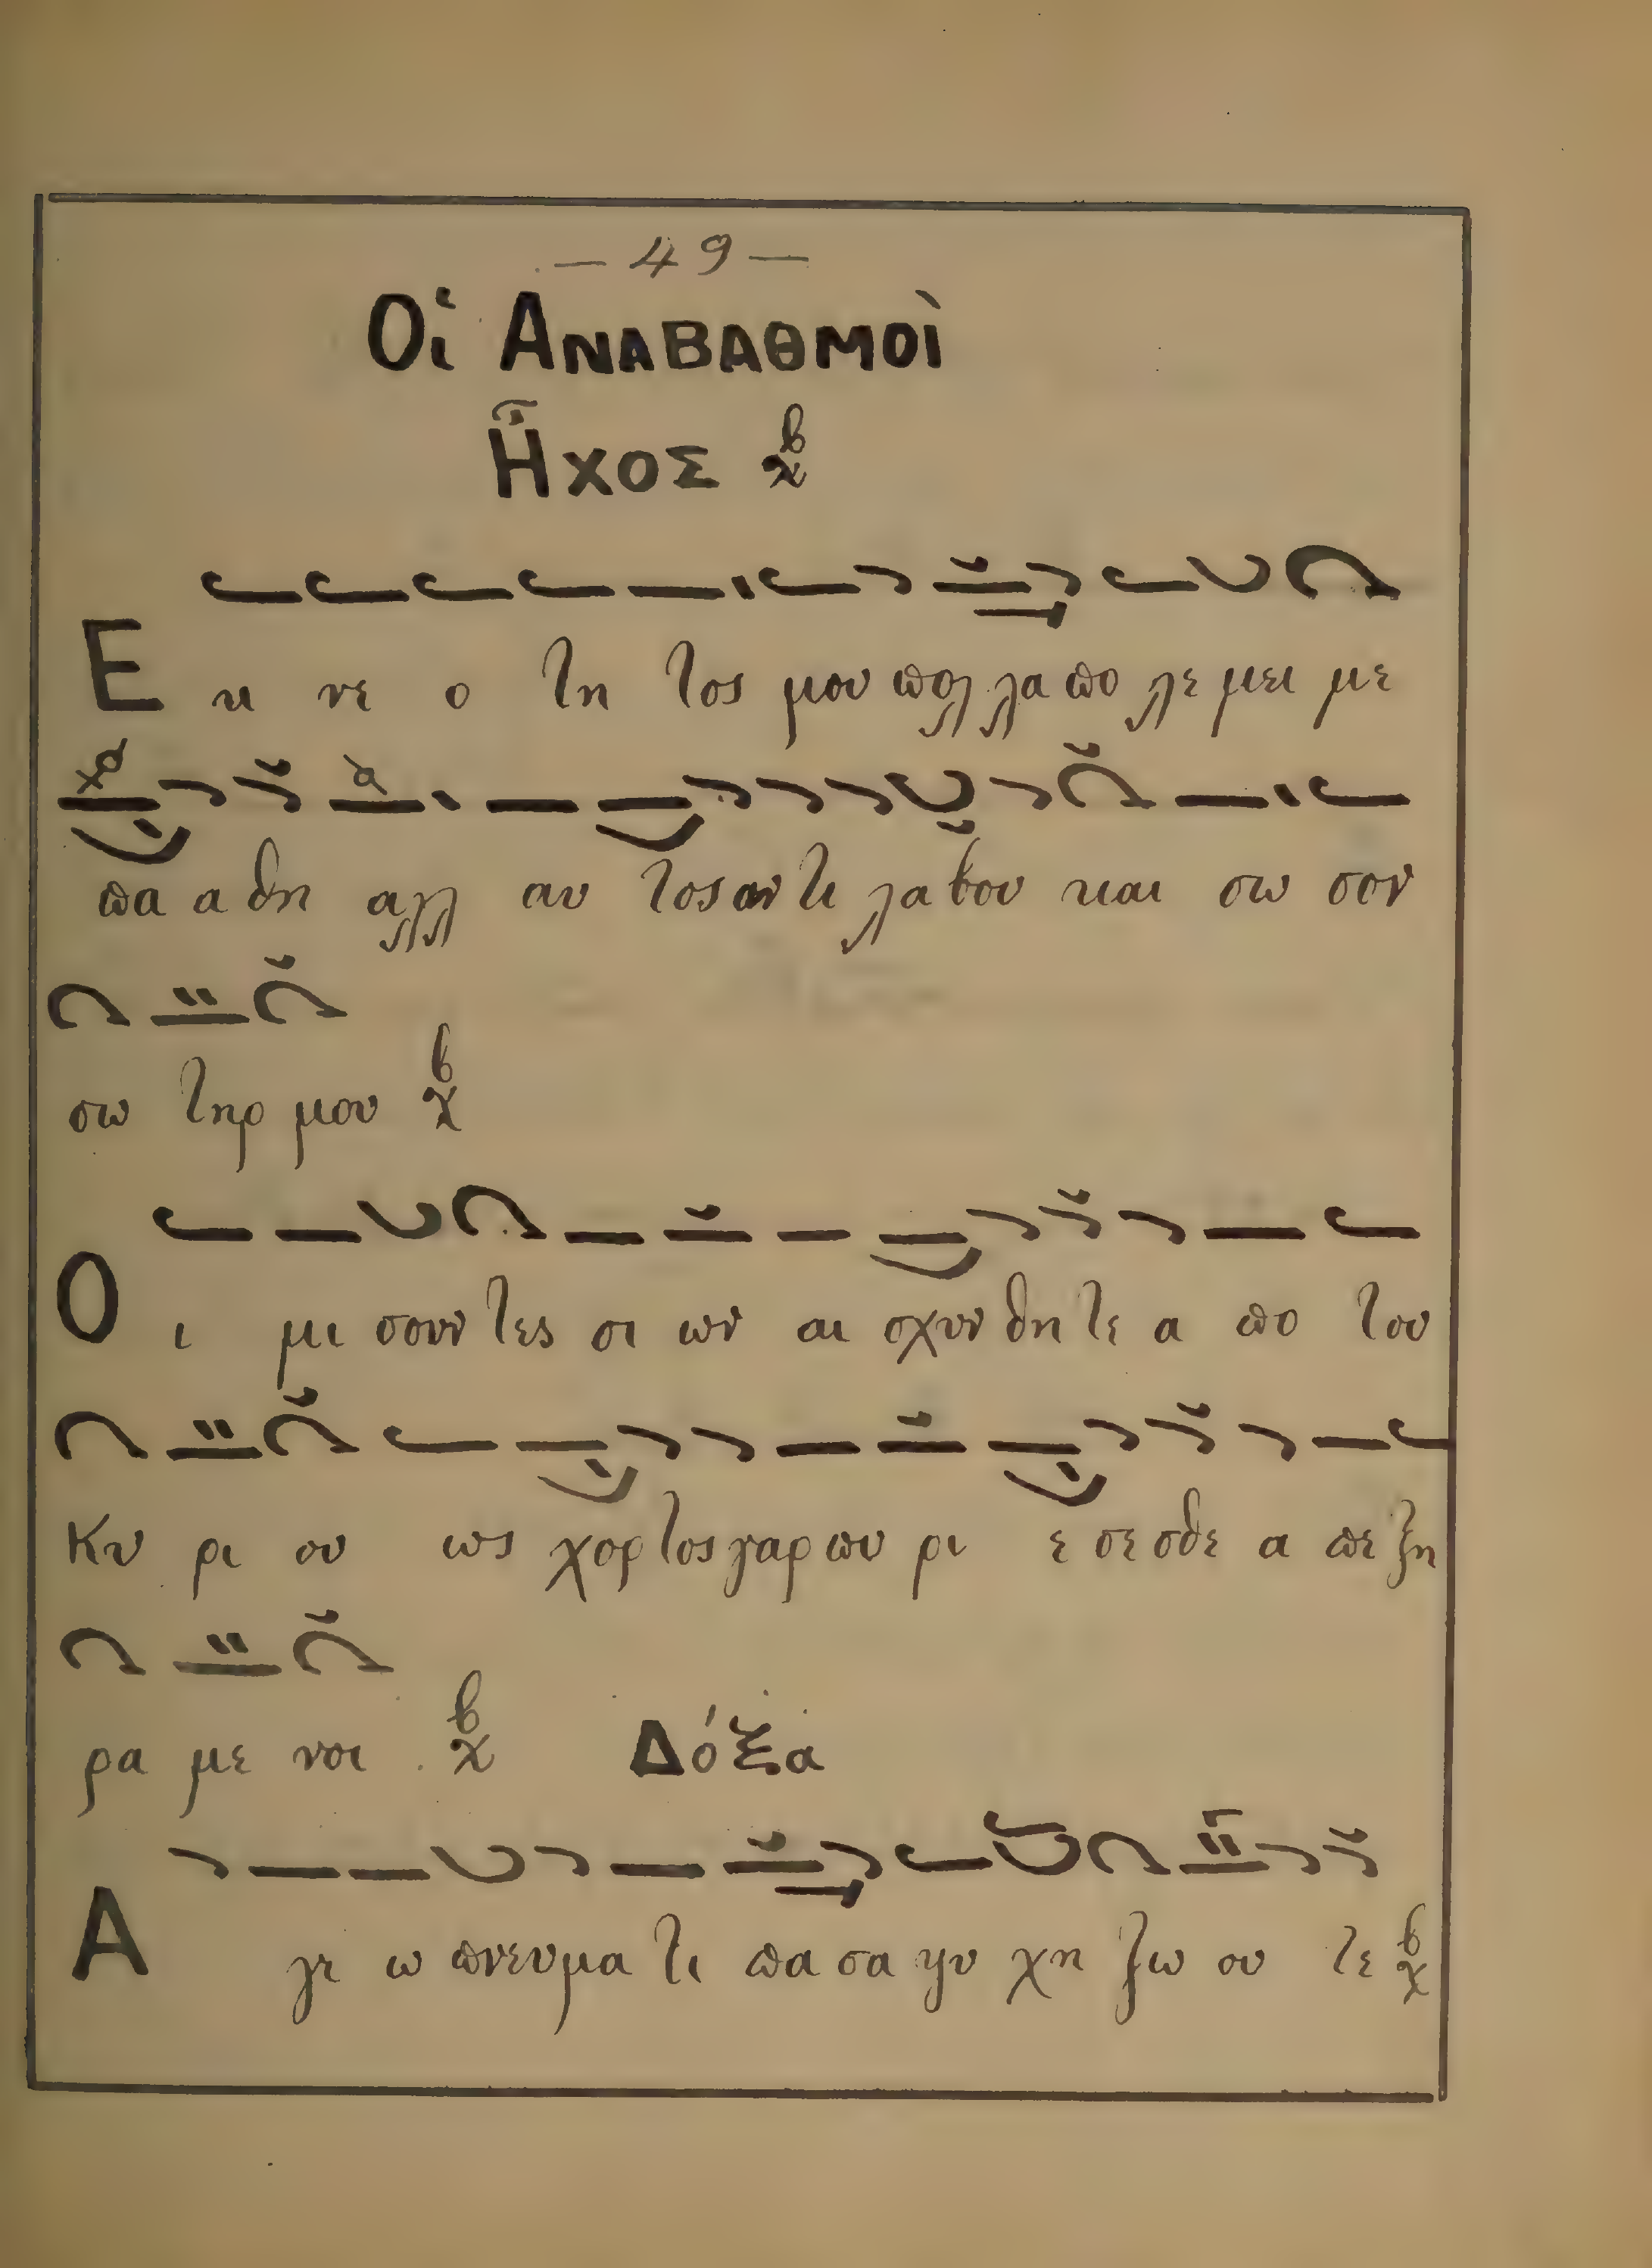 — 49 —
Οἱ ΑΝΑΒΑΘΜΟῚ
Ἦχος β
Ε κ νε ο τη τος μου πολ λα πο λε μει με
πα α θη αλλ αυ τος αν τι λα βου και σω σον
σω τηρ μου β
Ο ι μι σουν τες σι ων αι σχυν θη τε α πο του
Κυ ρι ου ως χορ τος γαρ πυ ρι ε σε σθε α πε ξη
ρα με νοι β Δόξα
Α γι ω πνευμα τι πα σα ψυ χη ζω ου τε β